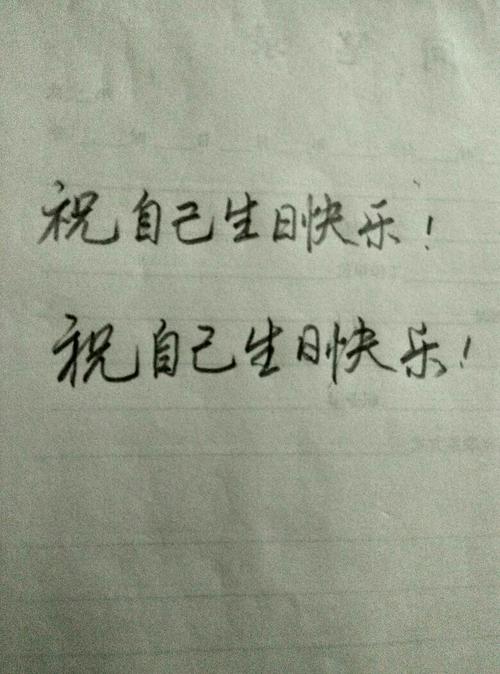 祝自己生日快乐！
祝自己生日快乐！